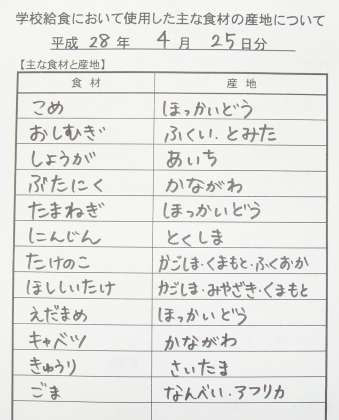 学校給食において使用した主な食材の産地について
平成 28 年 4 月 25 日分
【主な食材と産地】
食材 産地
こめ ほっかいどう
おしむぎ ふくい、とみた
しょうが あいち
ぶたにく かながわ
たまねぎ ほっかいどう
にんじん とくしま
たけのこ かごしま・くまもと・ふくおか
ほししいたけ かごしま・みやざき・くまもと
えだまめ ほっかいどう
キャベツ かながわ
きゅうり さいたま
ごま なんべい・アフリカ